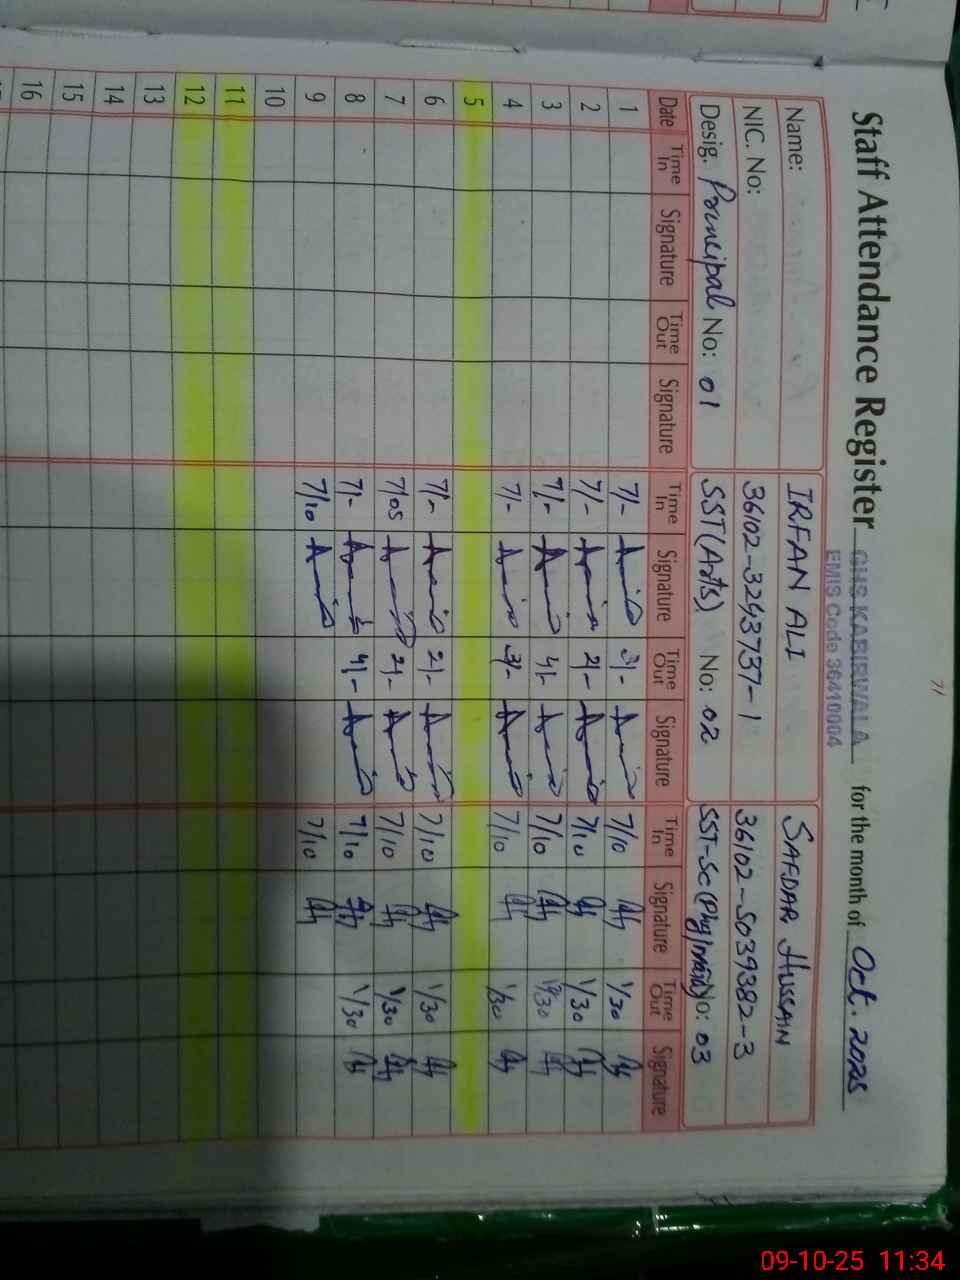 71
Staff Attendance Register GHS KABIRWALA for the month of Oct. 2025
EMIS Code 36410004
Name: IRFAN ALI SAFDAR HUSSAIN
NIC. No: 36102-3293737-1 36102-5039382-3
Desig. Principal No: 01 SST(Arts) No: 02 SST-Sc(Phy/Math) No: 03
Date Time In Signature Time Out Signature Time In Signature Time Out Signature Time In Signature Time Out Signature
1 7/- 3/- 7/10 1/30
2 7/- 2/- 7/10 1/30
3 7/- 4/- 7/10
4 7/- 3/- 7/10 1/30
5
6 7/- 2/- 7/10 1/30
7 7/05 2/- 7/10 1/30
8 7/- 4/- 7/10 1/30
9 7/10 7/10
10
11
12
13
14
15
16
09-10-25 11:34